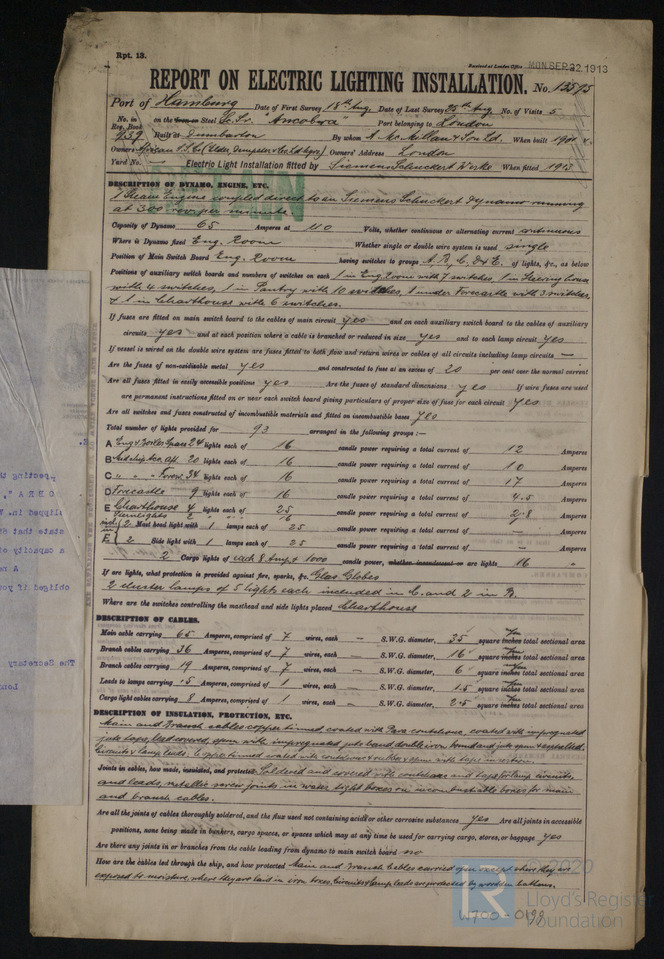 Rpt. 13.
Received at London Office MON. SEP. 22. 1913
REPORT ON ELECTRIC LIGHTING INSTALLATION. No. 13595
Port of Hamburg Date of First Survey 18th Aug. Date of Last Survey 25th Aug. No. of Visits 5
No. in Reg. Book 939 on the Iron or Steel S.S. "Ancobra" Port belonging to London
Built at Dumbarton By whom A. McMillan & Son Ld. When built
Owners African S.S. Co. (Elder, Dempster & Co. Ld. Owners' Address London
Yard No. — Electric Light Installation fitted by Siemens Schuckert Werke When fitted 1913
DESCRIPTION OF DYNAMO, ENGINE, ETC.
1 Steam Engine coupled direct to an Siemens Schuckert Dynamo running
at 300 rev. per minute.
Capacity of Dynamo 65 Amperes at 110 Volts, whether continuous or alternating current continuous
Where is Dynamo fixed Eng. Room Whether single or double wire system is used single
Position of Main Switch Board Eng. Room having switches to groups A, B, C, D & E of lights, &c., as below
Positions of auxiliary switch boards and numbers of switches on each 1 in Eng. Room with 7 switches, 1 in Steering house
with 4 switches, 1 in Pantry with 10 switches, 1 under Forecastle with 3 switches,
& 1 in Charthouse with 6 switches.
If fuses are fitted on main switch board to the cables of main circuit yes and on each auxiliary switch board to the cables of auxiliary
circuits yes and at each position where a cable is branched or reduced in size yes and to each lamp circuit yes
If vessel is wired on the double wire system are fuses fitted to both flow and return wires or cables of all circuits including lamp circuits —
Are the fuses of non-oxidizable metal yes and constructed to fuse at an excess of 20 per cent over the normal current
Are all fuses fitted in easily accessible positions yes Are the fuses of standard dimensions yes If wire fuses are used
are permanent instructions fitted on or near each switch board giving particulars of proper size of fuse for each circuit yes
Are all switches and fuses constructed of incombustible materials and fitted on incombustible bases yes
Total number of lights provided for 93 arranged in the following groups :—
A Eng & Boiler Space 24 lights each of 16 candle power requiring a total current of 12 Amperes
B Midship Acc. Aft. 20 lights each of 16 candle power requiring a total current of 10 Amperes
C " " Forw. 34 lights each of 16 candle power requiring a total current of 17 Amperes
D Forecastle 9 lights each of 16 candle power requiring a total current of 4.5 Amperes
E Charthouse 4 lights each of 25 candle power requiring a total current of 2.8 Amperes
2 16
2 Mast head light with 1 lamps each of 25 candle power requiring a total current of — Amperes
2 Side light with 1 lamps each of 25 candle power requiring a total current of — Amperes
2 Cargo lights of each 8 Amp. & 1000 candle power, whether incandescent or arc lights 16 "
If arc lights, what protection is provided against fire, sparks, &c. Glas Globes
2 cluster lamps of 5 lights each included in C and 2 in B.
Where are the switches controlling the masthead and side lights placed Charthouse
DESCRIPTION OF CABLES.
Main cable carrying 65 Amperes, comprised of 7 wires, each — S.W.G. diameter, 25 square inches total sectional area
Branch cables carrying 36 Amperes, comprised of 7 wires, each — S.W.G. diameter, 16 square inches total sectional area
Branch cables carrying 19 Amperes, comprised of 7 wires, each — S.W.G. diameter, 6 square inches total sectional area
Leads to lamps carrying .5 Amperes, comprised of 1 wires, each — S.W.G. diameter, 1.5 square inches total sectional area
Cargo light cables carrying 8 Amperes, comprised of 1 wires, each — S.W.G. diameter, 2.5 square inches total sectional area
DESCRIPTION OF INSULATION, PROTECTION, ETC.
Main and Branch cables copper tinned, coated with Para caoutchouc, coated with impregnated
jute tape, lead covered, spun with impregnated jute band double iron bound and jute spun & asphalted.
Circuits & lamp leads, copper tinned coated with caoutchouc & rubber & spun with tape
Joints in cables, how made, insulated, and protected Soldered and covered with caoutchouc and tape for lamp circuits,
and leads, metallic screw joints in water tight boxes on incombustible boxes for main
and branch cables.
Are all the joints of cables thoroughly soldered, and the flux used not containing acids or other corrosive substances yes Are all joints in accessible
positions, none being made in bunkers, cargo spaces, or spaces which may at any time be used for carrying cargo, stores, or baggage yes
Are there any joints in or branches from the cable leading from dynamo to main switch board no
How are the cables led through the ship, and how protected Main and Branch Cables carried open except where they are
exposed to moisture, where they are laid in iron tubes, Circuits & lamp leads are protected by wooden battens.
© 2020
Lloyd's Register
Foundation